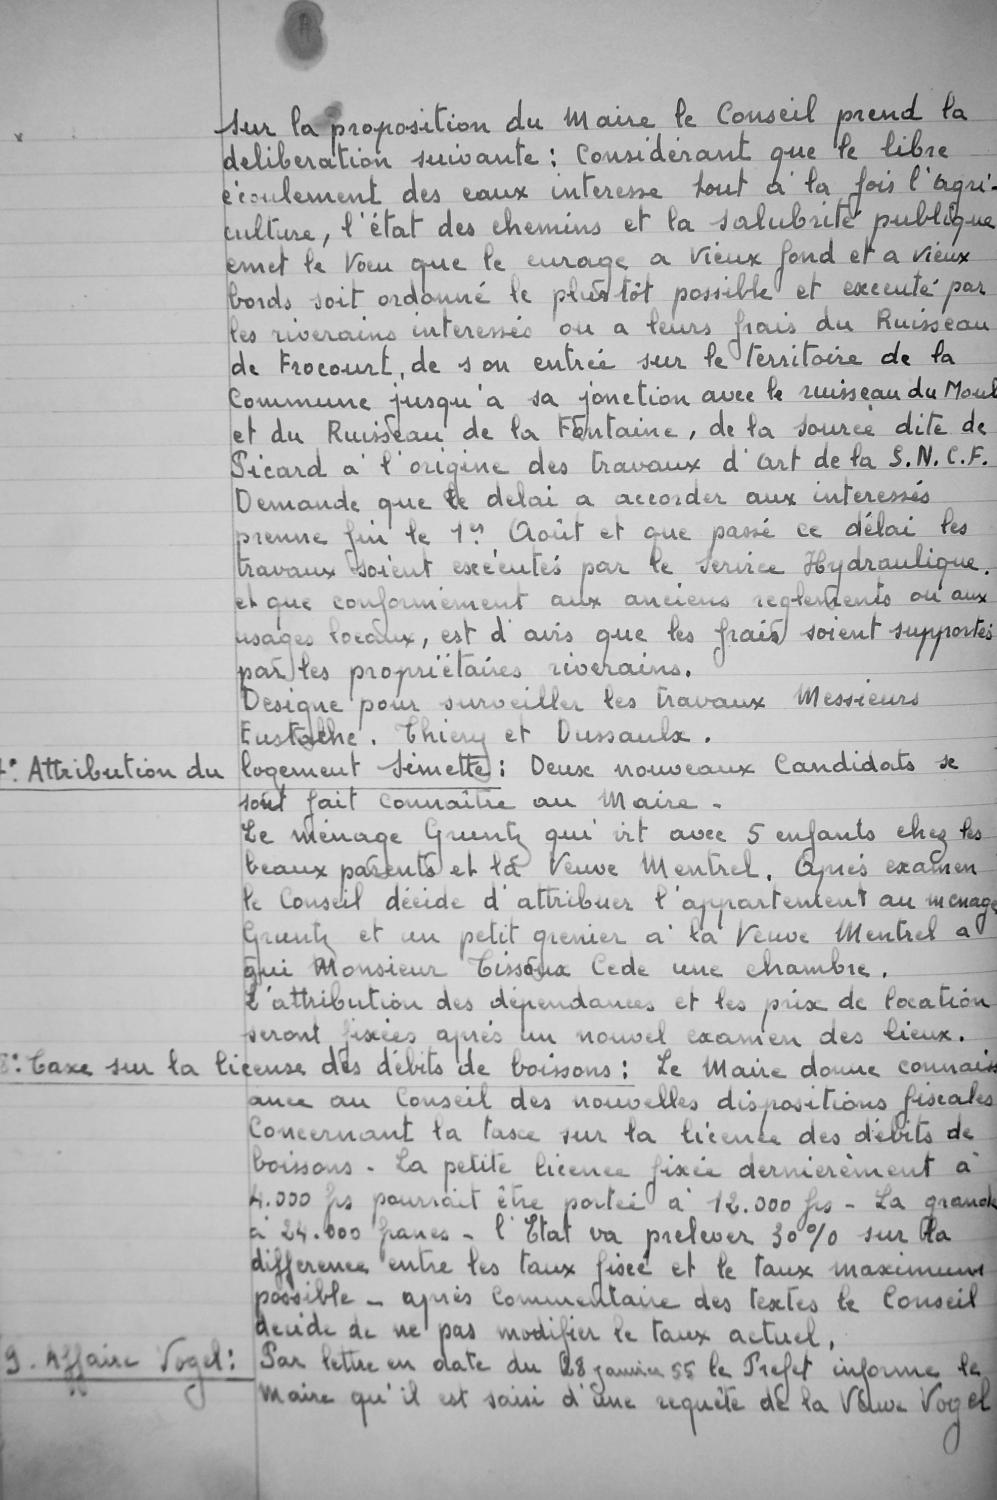 Sur la proposition du Maire le Conseil prend la
deliberation suivante : Considérant que le libre
écoulement des eaux interesse tout à la fois l'agri-
culture, l'état des chemins et la salubrité publique
emet le Voeu que le curage a vieux fond et a vieux
bords soit ordonné le plustôt possible et executé par
les riverains interessés ou a leurs frais du Ruisseau
de Frocourt, de son entrée sur le territoire de la
Commune jusqu'à sa jonction avec le ruisseau du Moul
et du Ruisseau de la Fontaine, de la source dite de
Picard à l'origine des travaux d'art de la S.N.C.F.
Demande que le delai a accorder aux interessés
prenne fin le 1er Août et que passé ce délai les
travaux soient exécutés par le Service Hydraulique.
et que conformément aux anciens reglements ou aux
usages locaux, est d'avis que les frais soient supportés
par les propriétaires riverains.
Designe pour surveiller les travaux Messieurs
Eustache. Thiery et Dussaulx.
Attribution du logement Simette : Deux nouveaux Candidats se
sont fait connaître au Maire -
Le ménage Gruntz qui vit avec 5 enfants chez les
beaux parents et la Veuve Mentrel. Après examen
le Conseil décide d'attribuer l'appartement au menage
Gruntz et un petit grenier à la Veuve Mentrel a
qui Monsieur Tissoux Cede une chambre.
L'attribution des dépendances et les prix de location
seront fixées après un nouvel examen des lieux.
8°: Taxe sur la license des débits de boissons : Le Maire donne connaiss
ance au Conseil des nouvelles dispositions fiscales
Concernant la taxe sur la licence des débits de
boissons - La petite licence fixée dernierèment à
4.000 frs pourrait être portée à 12.000 frs - La grande
à 24.000 francs - l'Etat va prelever 30% sur la
difference entre les taux fixée et le taux maximum
possible - après Commentaire des textes le Conseil
decide de ne pas modifier le taux actuel.
9. Affaire Vogel : Par lettre en date du 28 janvier 55 le Prefet informe le
Maire qu'il est saisi d'une requête de la Veuve Vogel